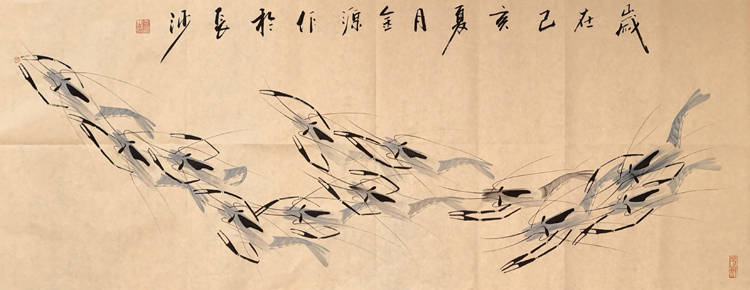 歲在己亥夏月金源作於長沙